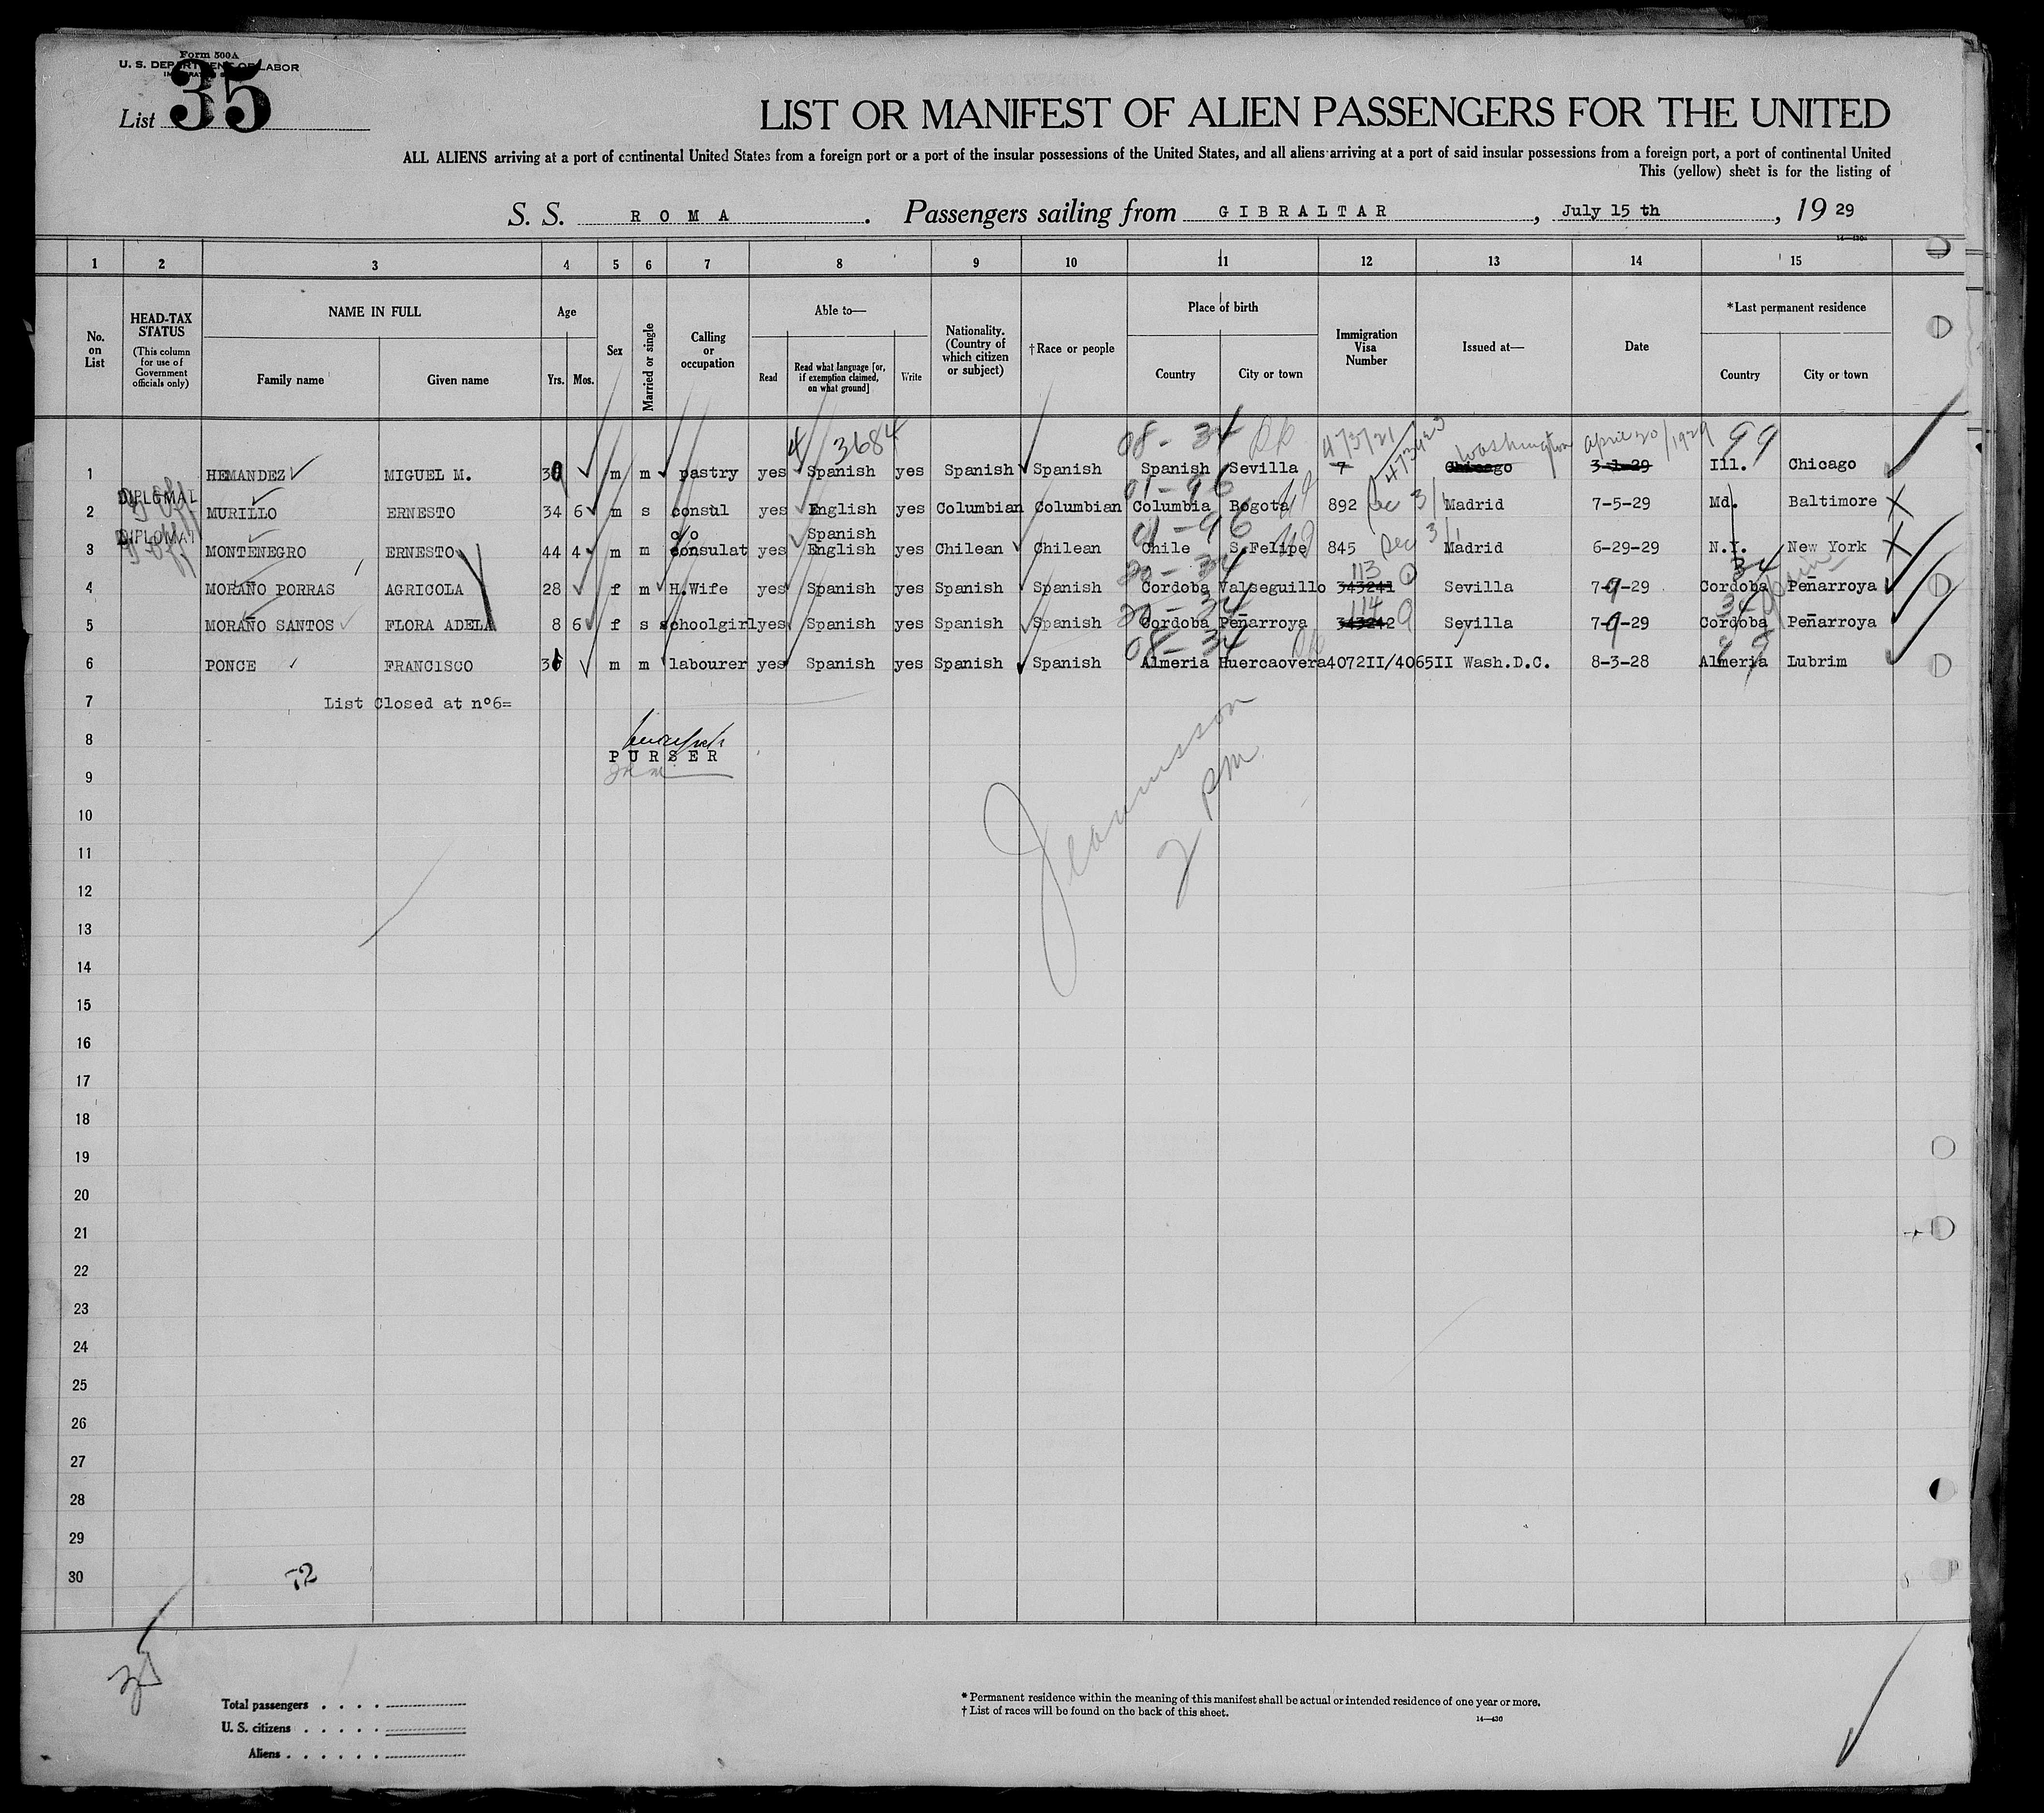 Form 500A
U. S. DEPARTMENT OF LABOR
List 35
LIST OR MANIFEST OF ALIEN PASSENGERS FOR THE UNITED
ALL ALIENS arriving at a port of continental United States from a foreign port or a port of the insular possessions of the United States, and all aliens arriving at a port of said insular possessions from a foreign port, a port of continental United
This (yellow) sheet is for the listing of
S. S. ROMA. Passengers sailing from GIBRALTAR, July 15 th, 1929
14—430
1 2 3 4 5 6 7 8 9 10 11 12 13 14 15
No. on List
HEAD-TAX STATUS (This column for use of Government officials only)
NAME IN FULL
Family name Given name
Age
Yrs. Mos.
Sex
Married or single
Calling or occupation
Able to—
Read Read what language [or, if exemption claimed, on what ground] Write
Nationality. (Country of which citizen or subject)
†Race or people
Place of birth
Country City or town
Immigration Visa Number
Issued at—
Date
*Last permanent residence
Country City or town
4 3684 08-34 Washington April 20/1929 99
1 HEMANDEZ MIGUEL M. 30 m m pastry yes Spanish yes Spanish Spanish Spanish Sevilla 7 Chicago 3-1-29 Ill. Chicago
DIPLOMAT 01-96
2 MURILLO ERNESTO 34 6 m s consul yes English yes Columbian Columbian Columbia Bogota 892 Dec 31 Madrid 7-5-29 Md. Baltimore
DIPLOMAT c/o Spanish 01-96
3 MONTENEGRO ERNESTO 44 4 m m consulat yes English yes Chilean Chilean Chile S.Felipe 845 Dec 31 Madrid 6-29-29 N.Y. New York
20-34 113 34
4 MORAÑO PORRAS AGRICOLA 28 f m H.Wife yes Spanish yes Spanish Spanish Cordoba Valseguillo 343241 Sevilla 7-9-29 Cordoba Peñarroya
20-34 114 34
5 MORAÑO SANTOS FLORA ADELA 8 6 f s schoolgirl yes Spanish yes Spanish Spanish Cordoba Peñarroya 343242 Sevilla 7-9-29 Cordoba Peñarroya
08-34 99
6 PONCE FRANCISCO 36 m m labourer yes Spanish yes Spanish Spanish Almeria Huercaovera 4072II/4065II Wash.D.C. 8-3-28 Almeria Lubrim
7 List Closed at nº6=
8
PURSER
9
2 pm
10
11
12
13
14
15
16
17
18
19
20
21
22
23
24
25
26
27
28
29
30
35
Total passengers
U. S. citizens
Aliens
* Permanent residence within the meaning of this manifest shall be actual or intended residence of one year or more.
† List of races will be found on the back of this sheet.
14—430